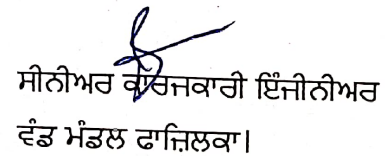 ਸੀਨੀਅਰ ਕਾੱਰਜਕਾਰੀ ਇੰਜੀਨੀਅਰ
ਵੰਡ ਮੰਡਲ ਫਾਜ਼ਿਲਕਾ।